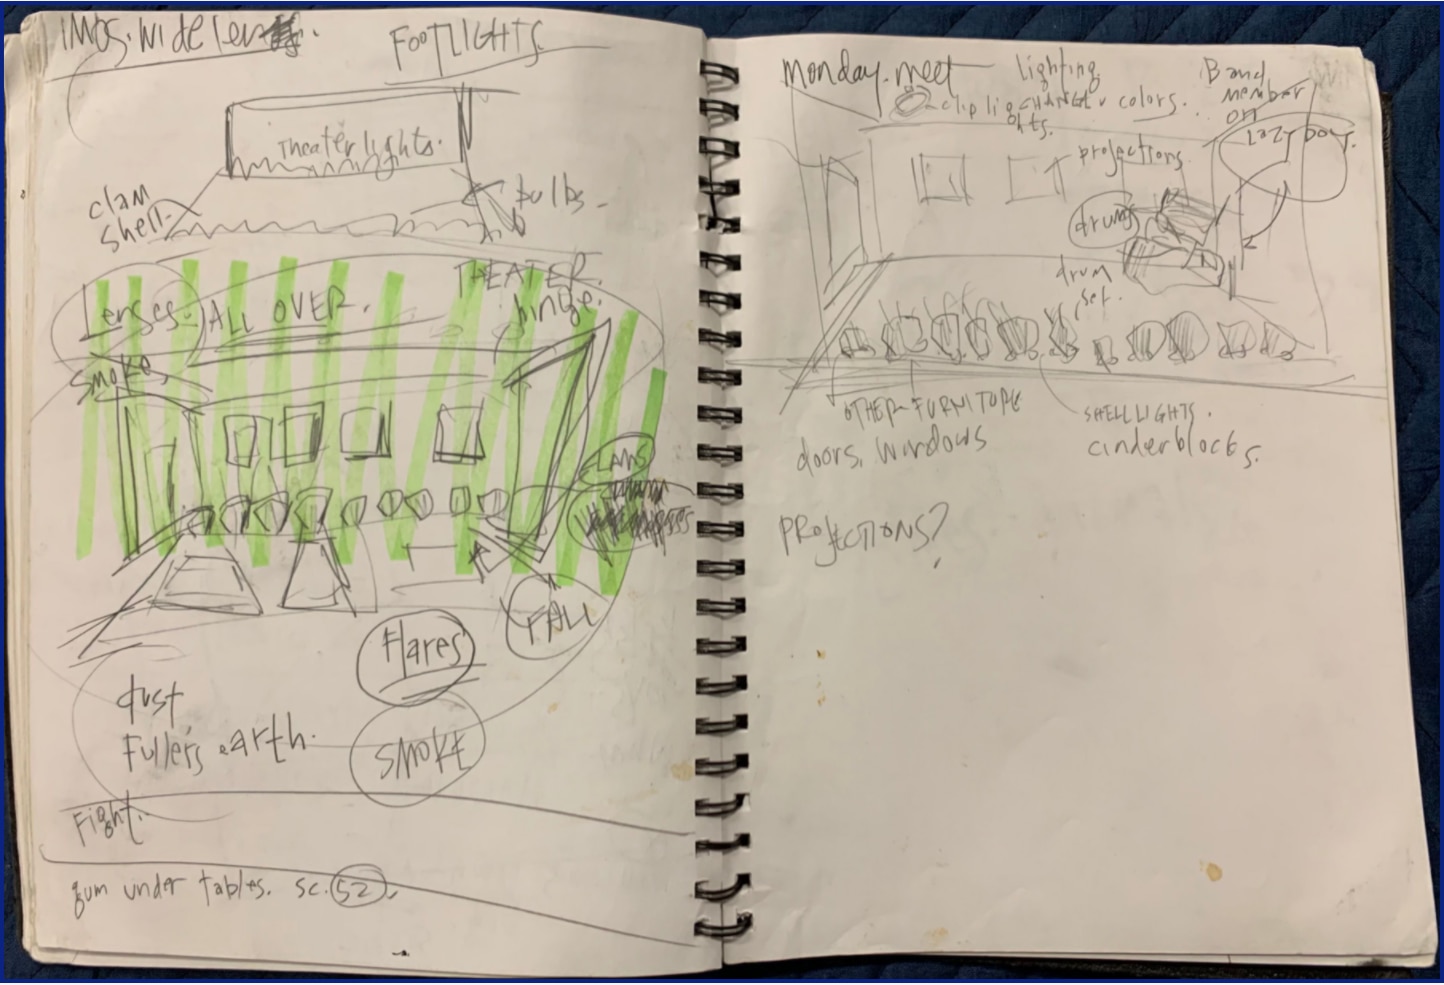 FOOTLIGHTS.
Theater lights.
clam
shell.
bulbs.
Lenses. ALL OVER.
THEATER
hinge.
smoke.
FALL
Flares
dust
Fuller's earth.
SMOKE
Fight.
gum under tables. sc. 52.
Monday. meet
lighting
clip lights.
CHANGE colors.
Band
member
on
Lazy boy.
projections
drums
drum
set.
OTHER FURNITURE
doors, windows
SHELL LIGHTS.
cinderblocks.
PROJECTIONS?